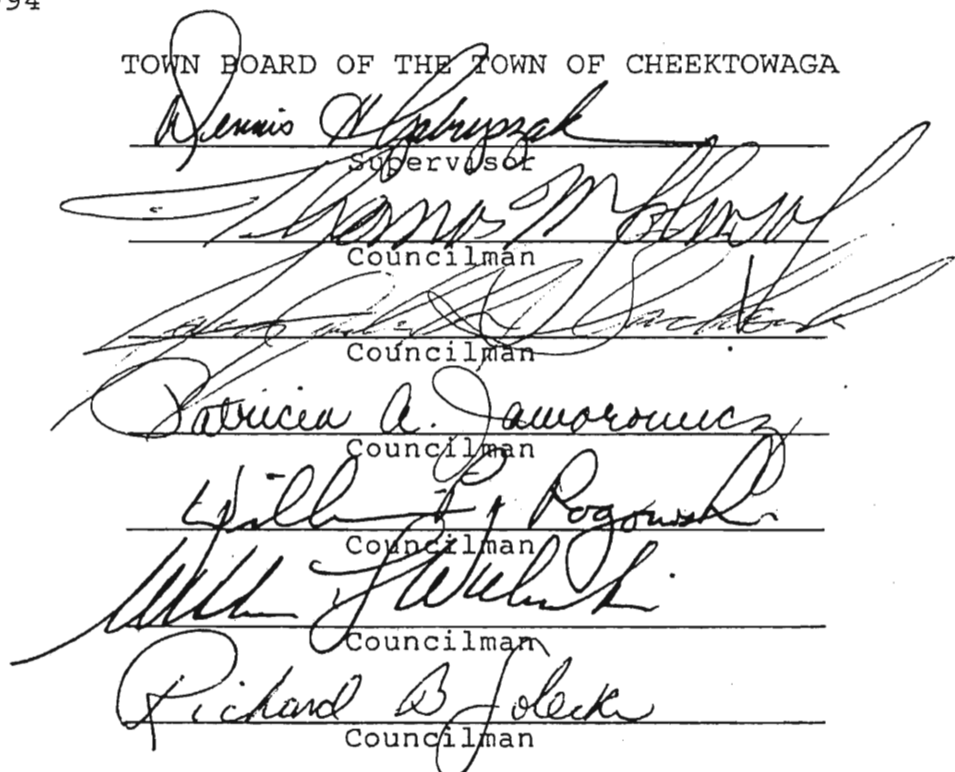 94
TOWN BOARD OF THE TOWN OF CHEEKTOWAGA
Dennis H Gabryszak
Supervisor
Thomas M
Councilman
Councilman
Patricia A. Jaworowicz
Councilman
William P. Rogowski
Councilman
William
Councilman
Richard B Solecki
Councilman